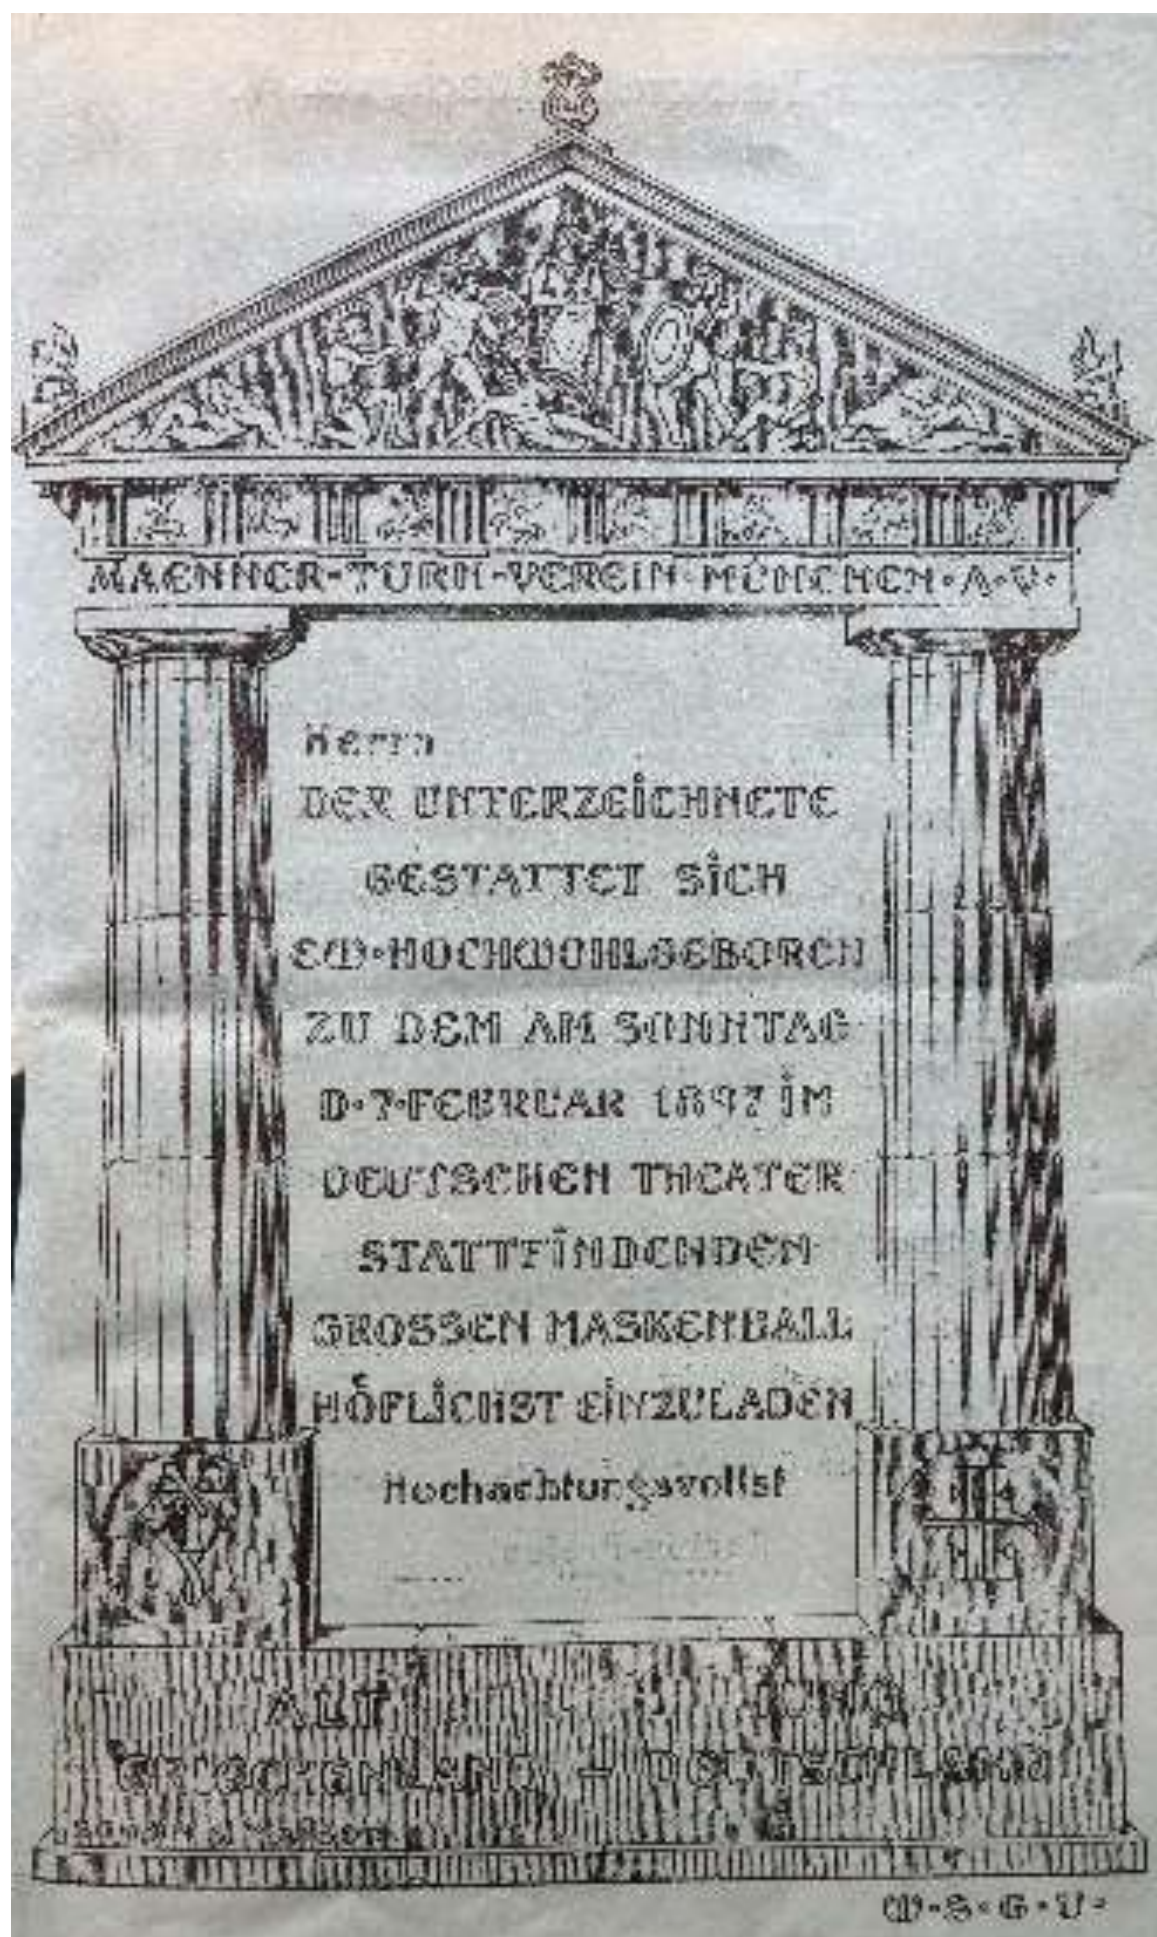 MAENNER-TURN-VEREIN·MÜNCHEN·A·V·
Herrn
DER UNTERZEICHNETE
GESTATTET SICH
EW·HOCHWOHLGEBOREN
ZU DEM AM SONNTAG
D·7·FEBRUAR 1897 IM
DEUTSCHEN THEATER
STATTFINDENDEN
GROSSEN MASKENBALL
HÖFLICHST EINZULADEN
Hochachtungsvollst
ALT JUNG
GRIECHENLAND - DEUTSCHLAND
W·S·G·U·